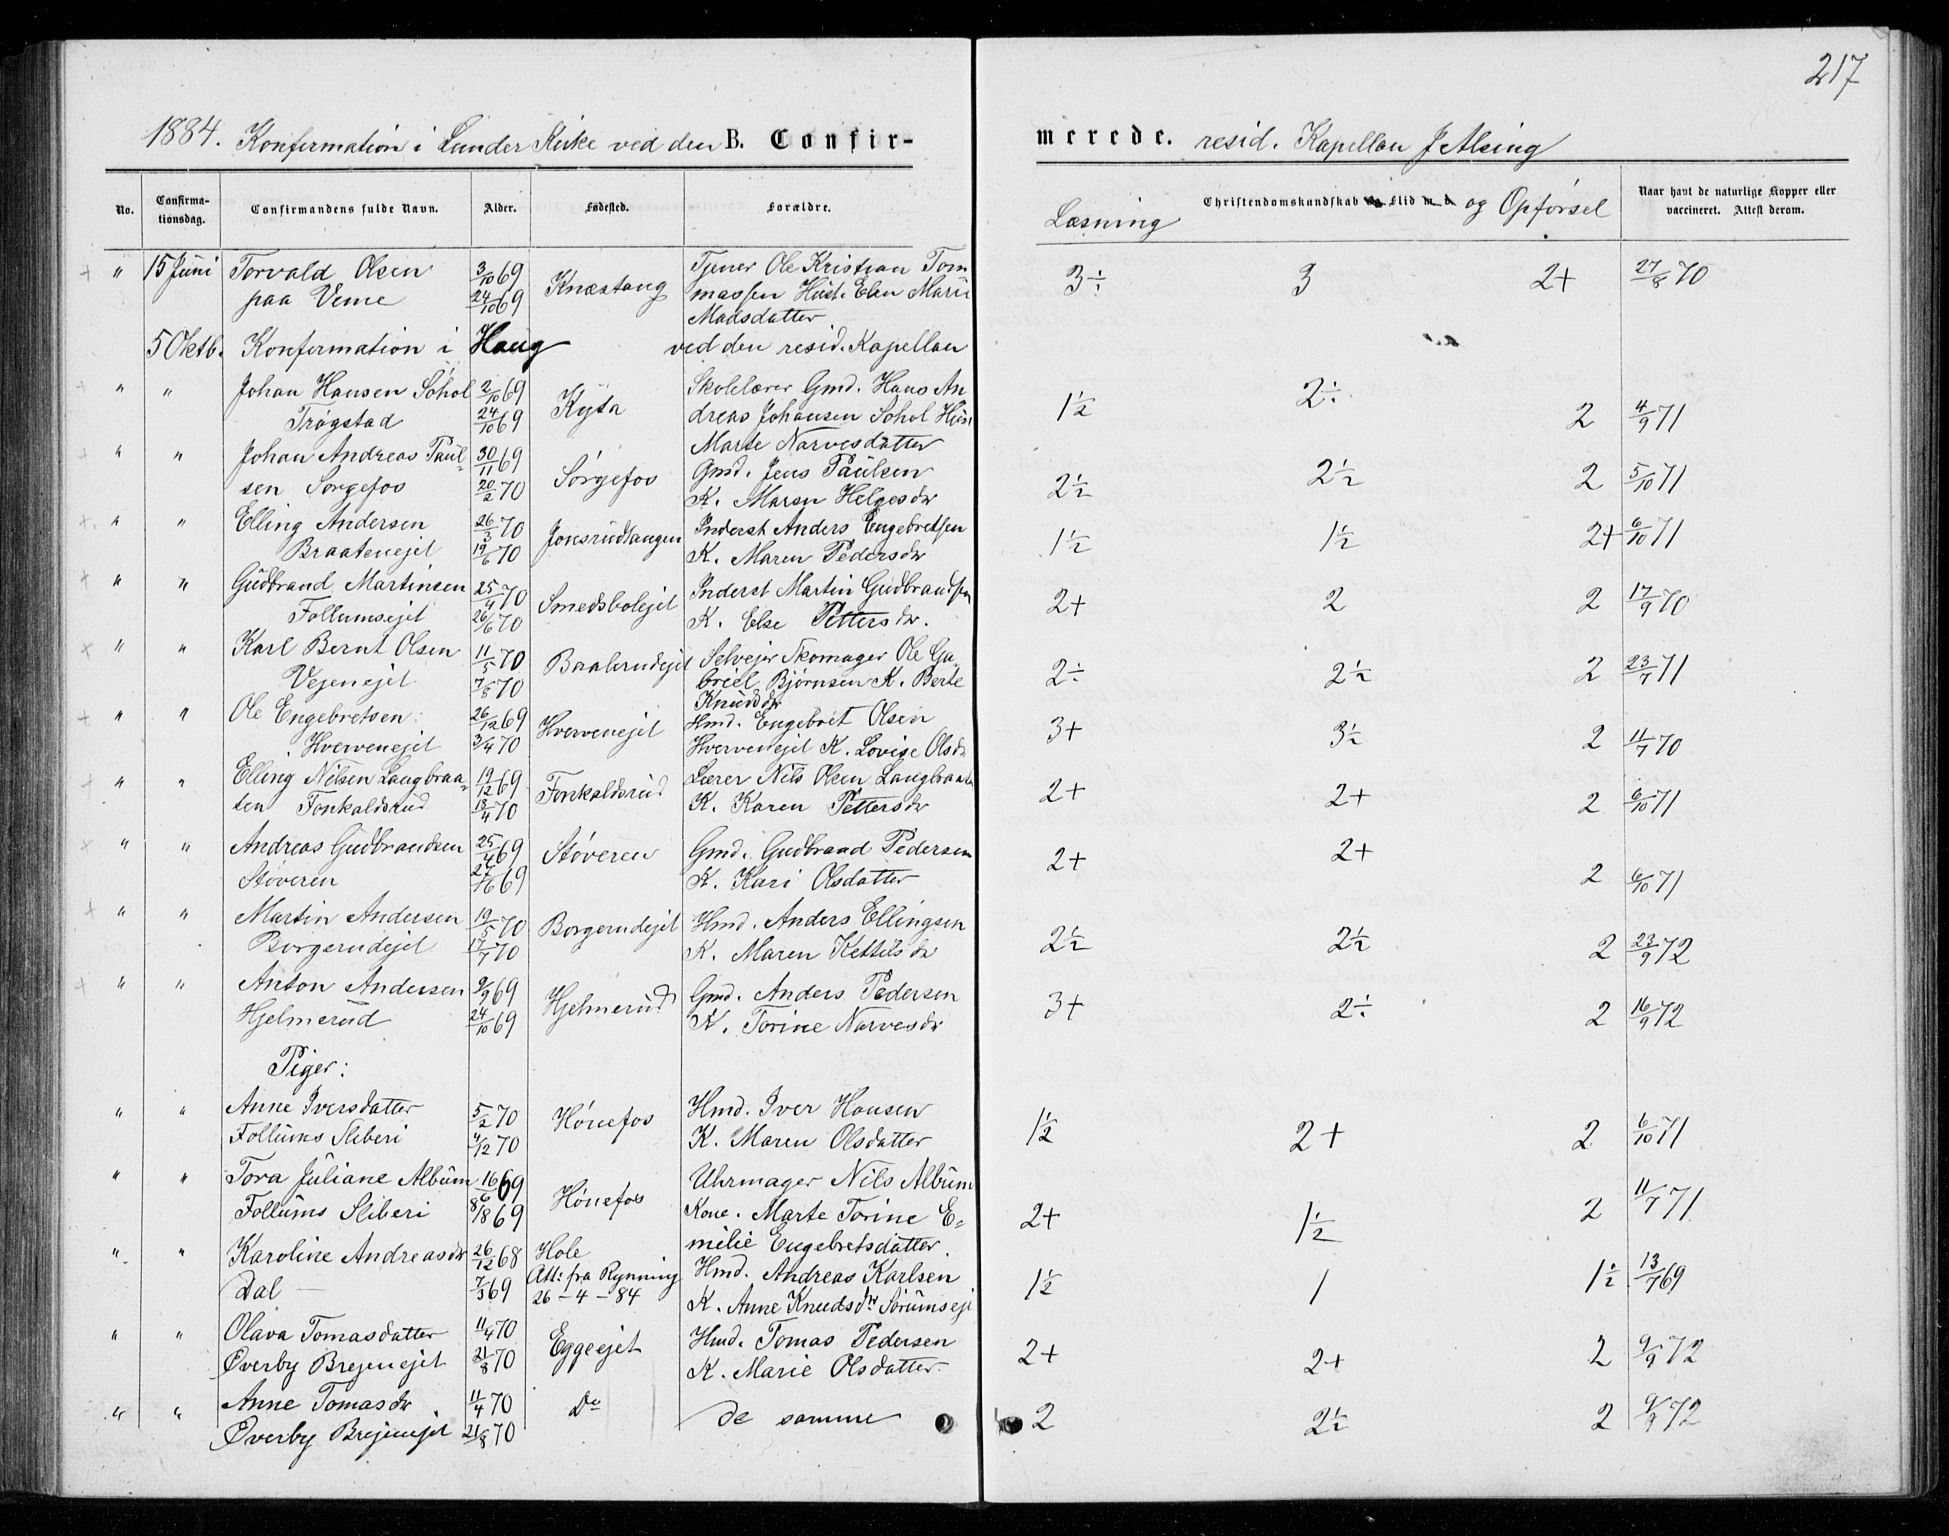 217
1884. Konfirmation i Lunder Kirke ved den B. Confir-
merede. resid. Kapellan J Alsing
No. Confirma-tionsdag. Confirmandens fulde Navn. Alder. Fødested. Forældre. Læsning Christendomskundskab og Flid m. v. og Opførsel Naar havt de naturlige Kopper eller vaccineret. Attest derom.
" 15 Juni Torvald Olsen 3/10 69 Knæstang Tjener Ole Kristian Tom 3÷ 3 2+ 27/8 70
paa Veme 24/10 69 massen Hust. Elen Marie
Madsdatter
5 Oktb. Konfirmation i Haug ved den resid. Kapellan
" " Johan Hansen Sohol 2/10 69 Kyta Skolelærer Gmd. Hans An 1½ 2÷ 2 4/9 71
Trøgstad 24/10 69 dreas Johansen Sohol Hus
Marte Narvesdatter
" " Johan Andreas Paul- 30/11 69 Sørgefos Gmd. Jens Paulsen 2½ 2½ 2 5/10 71
sen Sørgefos 20/2 70 K. Maren Helgesdr
" " Elling Andersen 26/3 70 Jonsrudtangen Inderst Anders Engebretsen 1½ 1½ 2+ 6/10 71
Braatenejet 19/6 70 K. Maren Pedersdr
" " Gudbrand Martinsen 25/4 70 Smedsbolejet Inderst Martin Gudbrandsen 2+ 2 2 17/9 70
Follumsejet 26/6 70 K. Else Pettersdr.
" " Karl Bernt Olsen 11/5 70 Baalerudejet Selvejer Skomager Ole Ga 2÷ 2½ 2 23/7 71
Vejenejet 7/8 70 briel Bjørnsen K. Berte
Knudsdr
" " Ole Engebretsen 26/12 69 Hvervenejet Hmd. Engebret Olsen 3+ 3½ 2 11/7 70
Hvervenejet 3/4 70 Hvervenejet K. Lovise Olsdr
" " Elling Nilsen Langbraa- 19/12 69 Fonkaldsrud Lærer Nils Olsen Langbraaten 2+ 2+ 2 6/10 71
ten Fonkaldsrud 13/4 70 K. Karen Pettersdr
" " Andreas Gudbrandsen 25/4 69 Støveren Gmd. Gudbrand Pedersen 2+ 2+ 2 6/10 71
Støveren 69 K. Kari Olsdatter
" " Martin Andersen 19/5 70 Borgerudejet Hmd. Anders Ellingsen 2½ 2½ 2 23/9 72
Borgerudejet 17/7 70 K. Maren Kettilsdr
" " Anton Andersen 9/9 69 Hjelmerud Gmd. Anders Pedersen 3+ 2÷ 2 16/9 72
Hjelmerud 24/10 69 K. Torine Narvesdr
Piger:
" " Anne Iversdatter 5/2 70 Hønefos Hmd. Iver Hansen 1½ 2+ 2 6/10 71
Follums Sliberi 4/12 70 K. Maren Olsdatter
" " Tora Juliane Album 16/6 69 Hønefos Uhrmager Nils Album 2+ 1½ 2 11/7 71
Follums Sliberi 8/8 69 Kone. Marte Torine E-
milie Engebretsdatter.
" " Karoline Andreasdr 26/12 68 Hole Hmd. Andreas Karlsen 1½ 1 1½ 13/7 69
Dal — 7/3 69 Att: fra Rynning K. Anne Knudsdr Sørumseje
26-4-84
" " Olava Tomasdatter 11/4 70 Eggeejet Hmd. Tomas Pedersen 2+ 2+ 2 9/9 72
Øverby Brejenejet 21/8 70 K. Marie Olsdatter.
" " Anne Tomasdr 11/4 70 Do de samme 2 2½ 2 9/9 72
Øverby Brejenejet 21/8 70